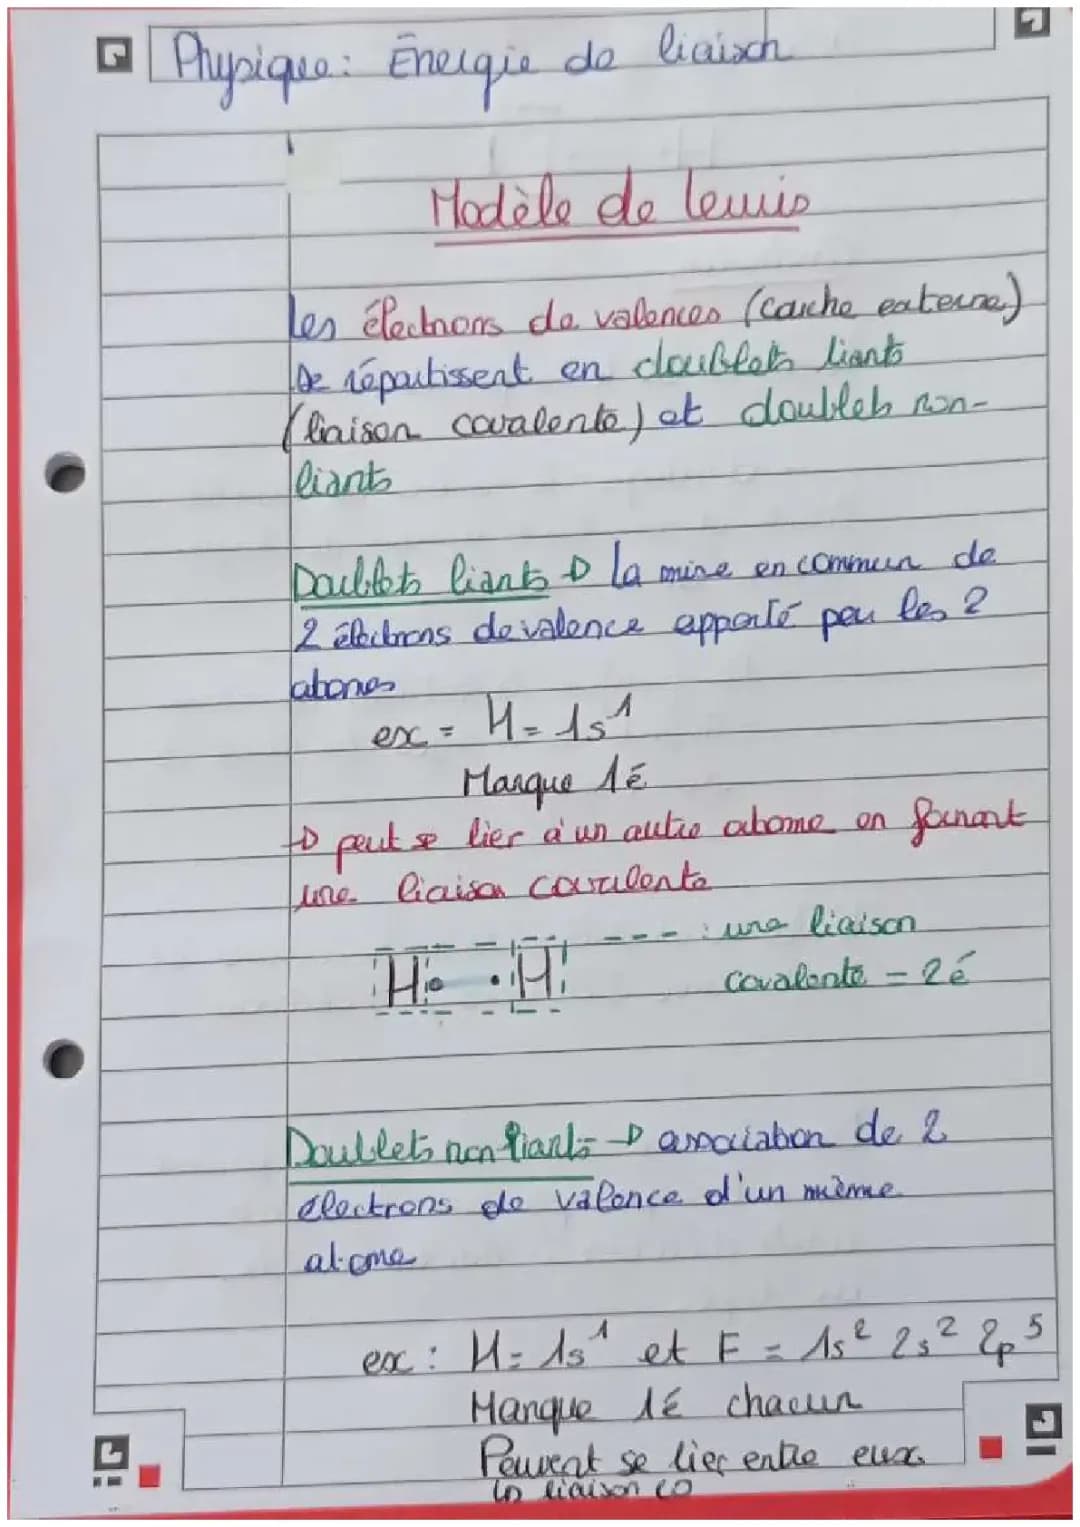 Physique: Énergie de liaison
Modèle de lewis
Les électrons de valences (couche externe)
se répartissent en doublets liants
(liaison covalente) et doublets non-
liants
Doublets liants → la mise en commun de
2 électrons de valence apporté par les 2
atomes
ex = H = 1s¹
Manque 1é
→ peut se lier à un autre atome en formant
une liaison covalente
H• •H --- : une liaison
covalente = 2é
Doublets non liants → association de 2
électrons de valence d'un même
atome
ex : H = 1s¹ et F = 1s² 2s² 2p⁵
Manque 1é chacun
Peuvent se lier entre eux
↳ liaison co